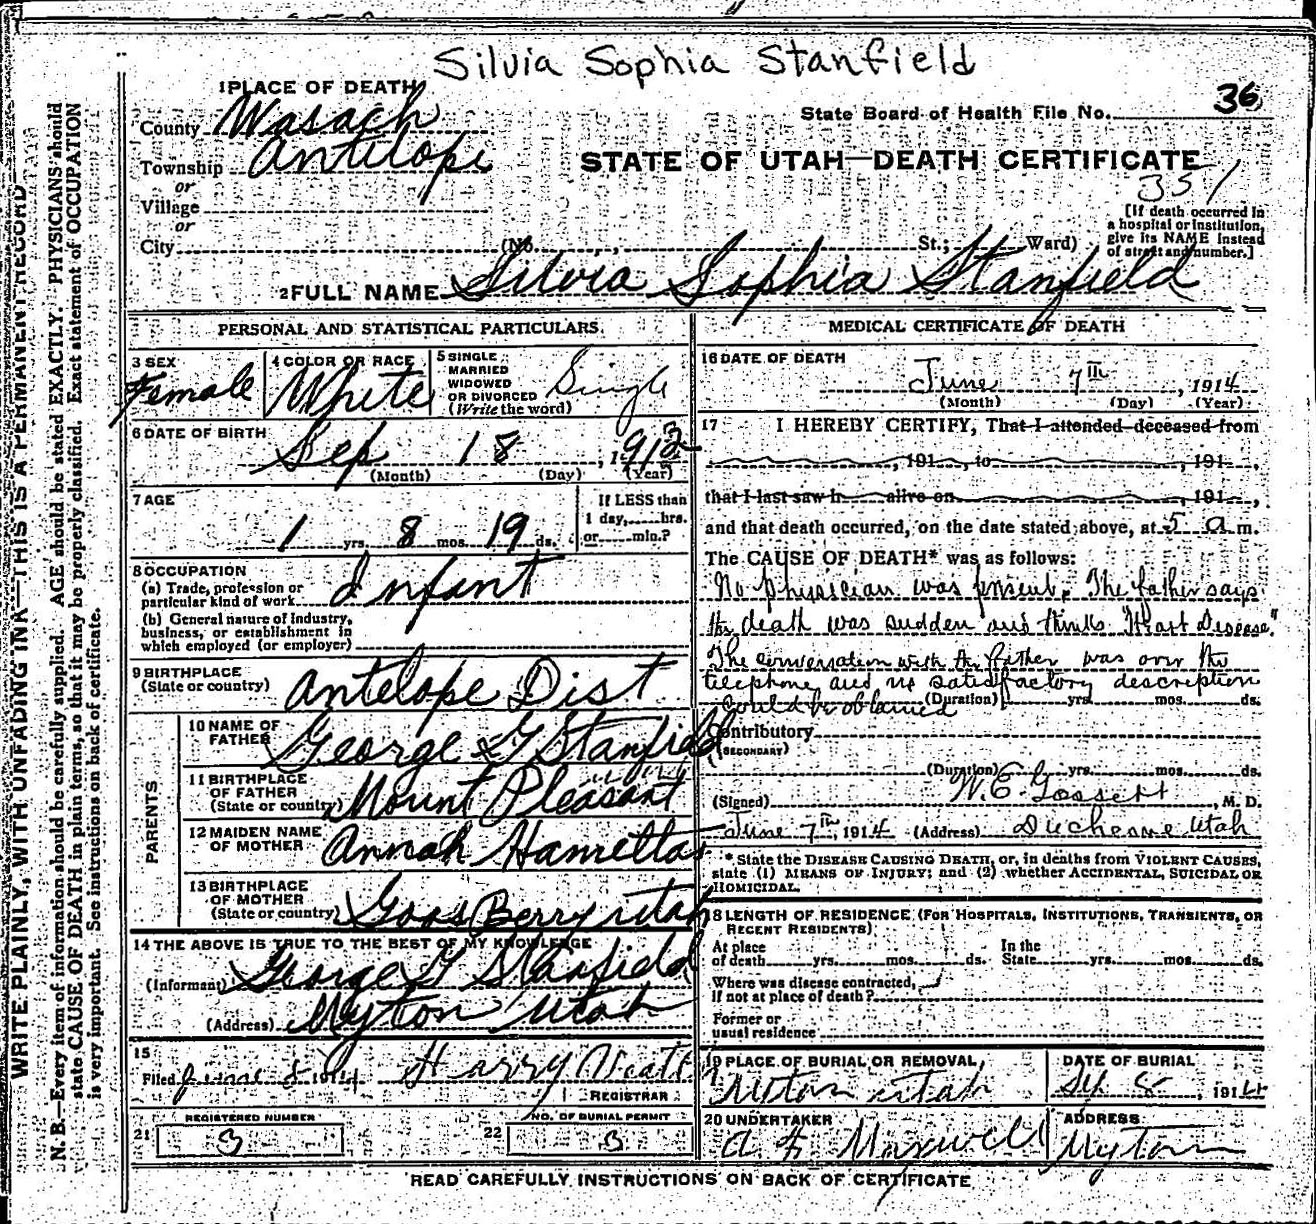 Silvia Sophia Stanfield
1 PLACE OF DEATH
County Wasach
Township Antelope
or
Village
or
City (No. St.; Ward)
State Board of Health File No. 36
STATE OF UTAH—DEATH CERTIFICATE
351
[If death occurred in
a hospital or institution,
give its NAME instead
of street and number.]
2 FULL NAME Silvia Sophia Stanfield
PERSONAL AND STATISTICAL PARTICULARS.
3 SEX
Female
4 COLOR OR RACE
White
5 SINGLE
MARRIED
WIDOWED
OR DIVORCED
(Write the word)
Single
6 DATE OF BIRTH
Sep 18, 1912
(Month) (Day) (Year)
7 AGE
1 yrs. 8 mos. 19 ds.
If LESS than
1 day, hrs.
or min.?
8 OCCUPATION
(a) Trade, profession or
particular kind of work Infant
(b) General nature of industry,
business, or establishment in
which employed (or employer)
9 BIRTHPLACE
(State or country) Antelope Dist
PARENTS
10 NAME OF
FATHER George G Stanfield
11 BIRTHPLACE
OF FATHER
(State or country) Mount Pleasant
12 MAIDEN NAME
OF MOTHER Annah
13 BIRTHPLACE
OF MOTHER
(State or country) Goos Berry utah
14 THE ABOVE IS TRUE TO THE BEST OF MY KNOWLEDGE
(Informant) George G Stanfield
(Address) Myton Utah
15
Filed June 8 1914 Harry
REGISTRAR
REGISTERED NUMBER
21 3
NO. OF BURIAL PERMIT
22 3
MEDICAL CERTIFICATE OF DEATH
16 DATE OF DEATH
June 7th, 1914
(Month) (Day) (Year)
17 I HEREBY CERTIFY, That I attended deceased from
, 191 , to , 191 ,
that I last saw h alive on , 191 ,
and that death occurred, on the date stated above, at 5 a m.
The CAUSE OF DEATH* was as follows:
No Physician was present. The father says
the death was sudden and thinks "Heart Disease."
The conversation with the father was over the
telephone and no satisfactory description
could be obtained
(Duration) yrs. mos. ds.
Contributory
(SECONDARY)
(Duration) yrs. mos. ds.
(Signed) W. E. Gossett, M. D.
June 7th, 1914 (Address) Duchesne Utah
* State the DISEASE CAUSING DEATH, or, in deaths from VIOLENT CAUSES,
state (1) MEANS OF INJURY; and (2) whether ACCIDENTAL, SUICIDAL OR
HOMICIDAL.
18 LENGTH OF RESIDENCE (FOR HOSPITALS, INSTITUTIONS, TRANSIENTS, OR
RECENT RESIDENTS)
At place
of death yrs. mos. ds.
In the
State yrs. mos. ds.
Where was disease contracted,
if not at place of death?
Former or
usual residence
19 PLACE OF BURIAL OR REMOVAL,
Myton utah
DATE OF BURIAL
8, 1914
20 UNDERTAKER
Maxwell
ADDRESS
Myton
READ CAREFULLY INSTRUCTIONS ON BACK OF CERTIFICATE
WRITE PLAINLY, WITH UNFADING INK—THIS IS A PERMANENT RECORD
N. B.—Every item of information should be carefully supplied. AGE should be stated EXACTLY. PHYSICIANS should
state CAUSE OF DEATH in plain terms, so that it may be properly classified. Exact statement of OCCUPATION
is very important. See instructions on back of certificate.